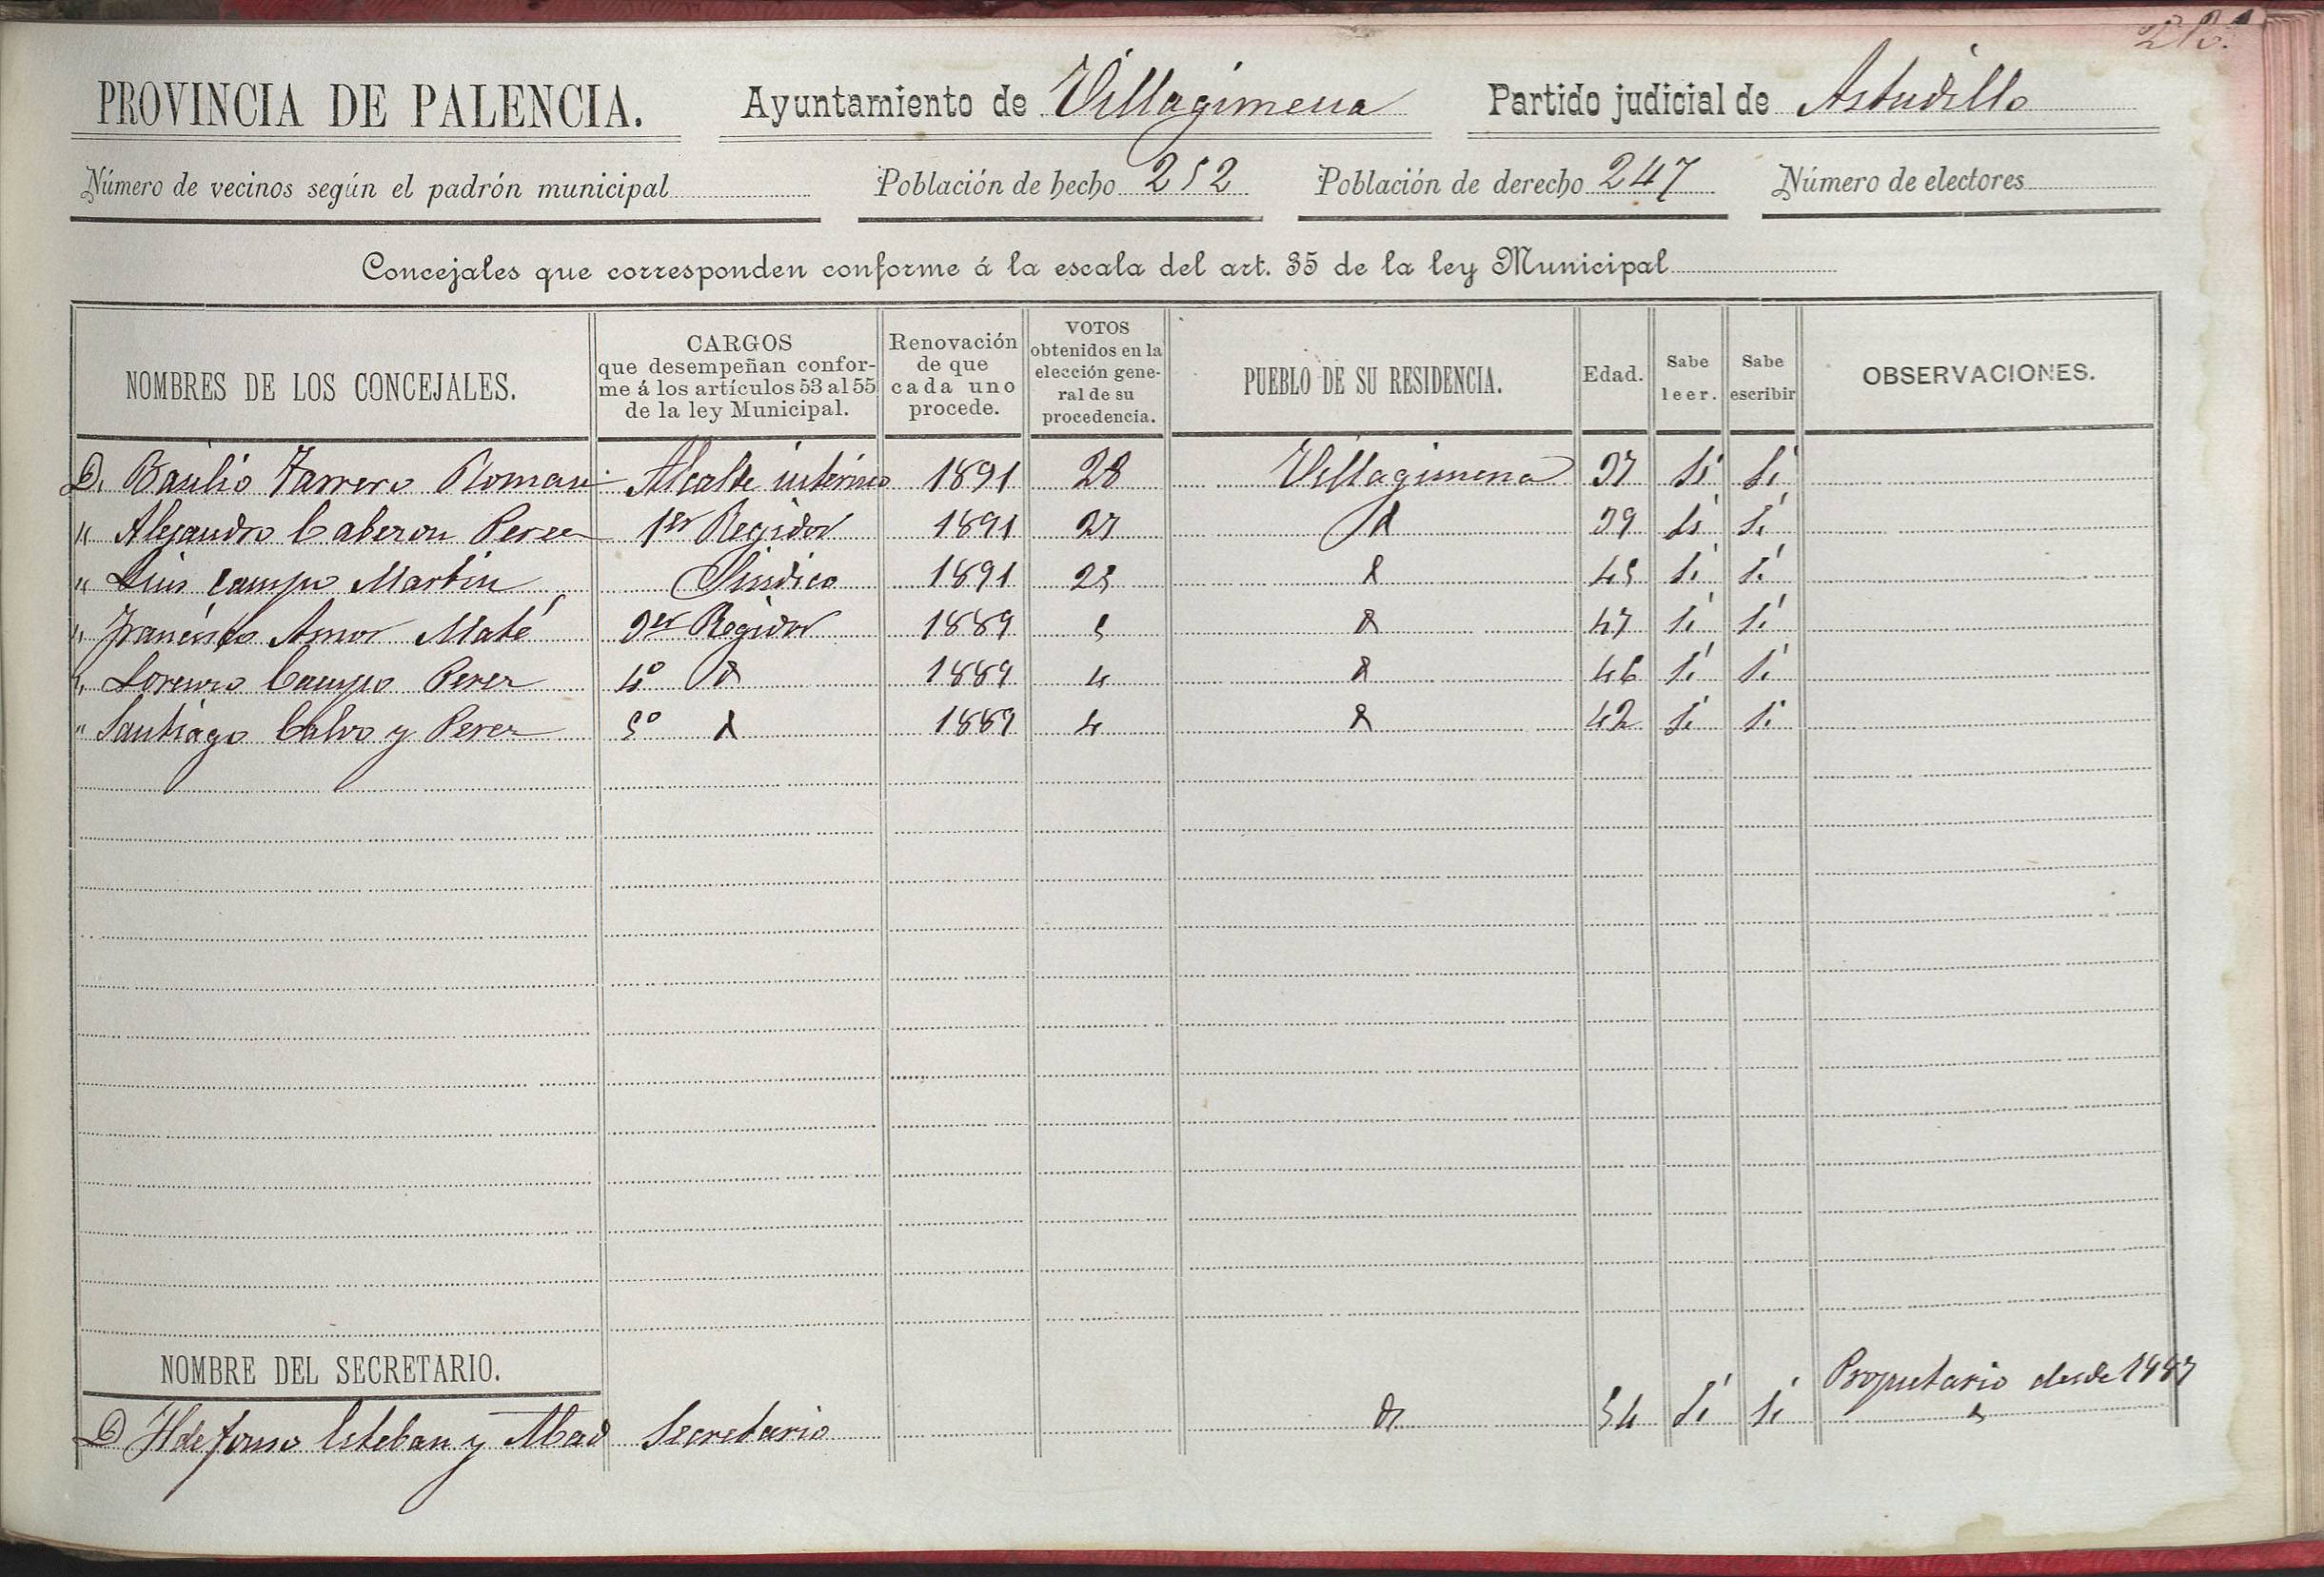 PROVINCIA DE PALENCIA. Ayuntamiento de Villagimena Partido judicial de Astudillo
Número de vecinos según el padrón municipal Población de hecho 252 Población de derecho 247 Número de electores
Concejales que corresponden conforme á la escala del art. 35 de la ley Municipal
NOMBRES DE LOS CONCEJALES. CARGOS que desempeñan conforme á los artículos 53 al 55 de la ley Municipal. Renovación de que cada uno procede. VOTOS obtenidos en la elección general de su procedencia. PUEBLO DE SU RESIDENCIA. Edad. Sabe leer. Sabe escribir OBSERVACIONES.
D. Baulio Tarrero Roman Alcalde interino 1891 28 Villagimena 37 Si Si
" Alejandro Caberon Perez 1er Regidor 1891 27 d 39 Si Si
" Luis Campo Martin Sindico 1891 25 d 45 Si Si
" Francisco Amor Maté 3er Regidor 1889 5 d 47 Si Si
" Lorenzo Campo Perez 4º d 1889 4 d 46 Si Si
" Santiago Calvo y Perez 5º d 1889 4 d 42 Si Si
NOMBRE DEL SECRETARIO.
D Ildefonso Esteban y Abad Secretario d 54 Si Si Propietario desde